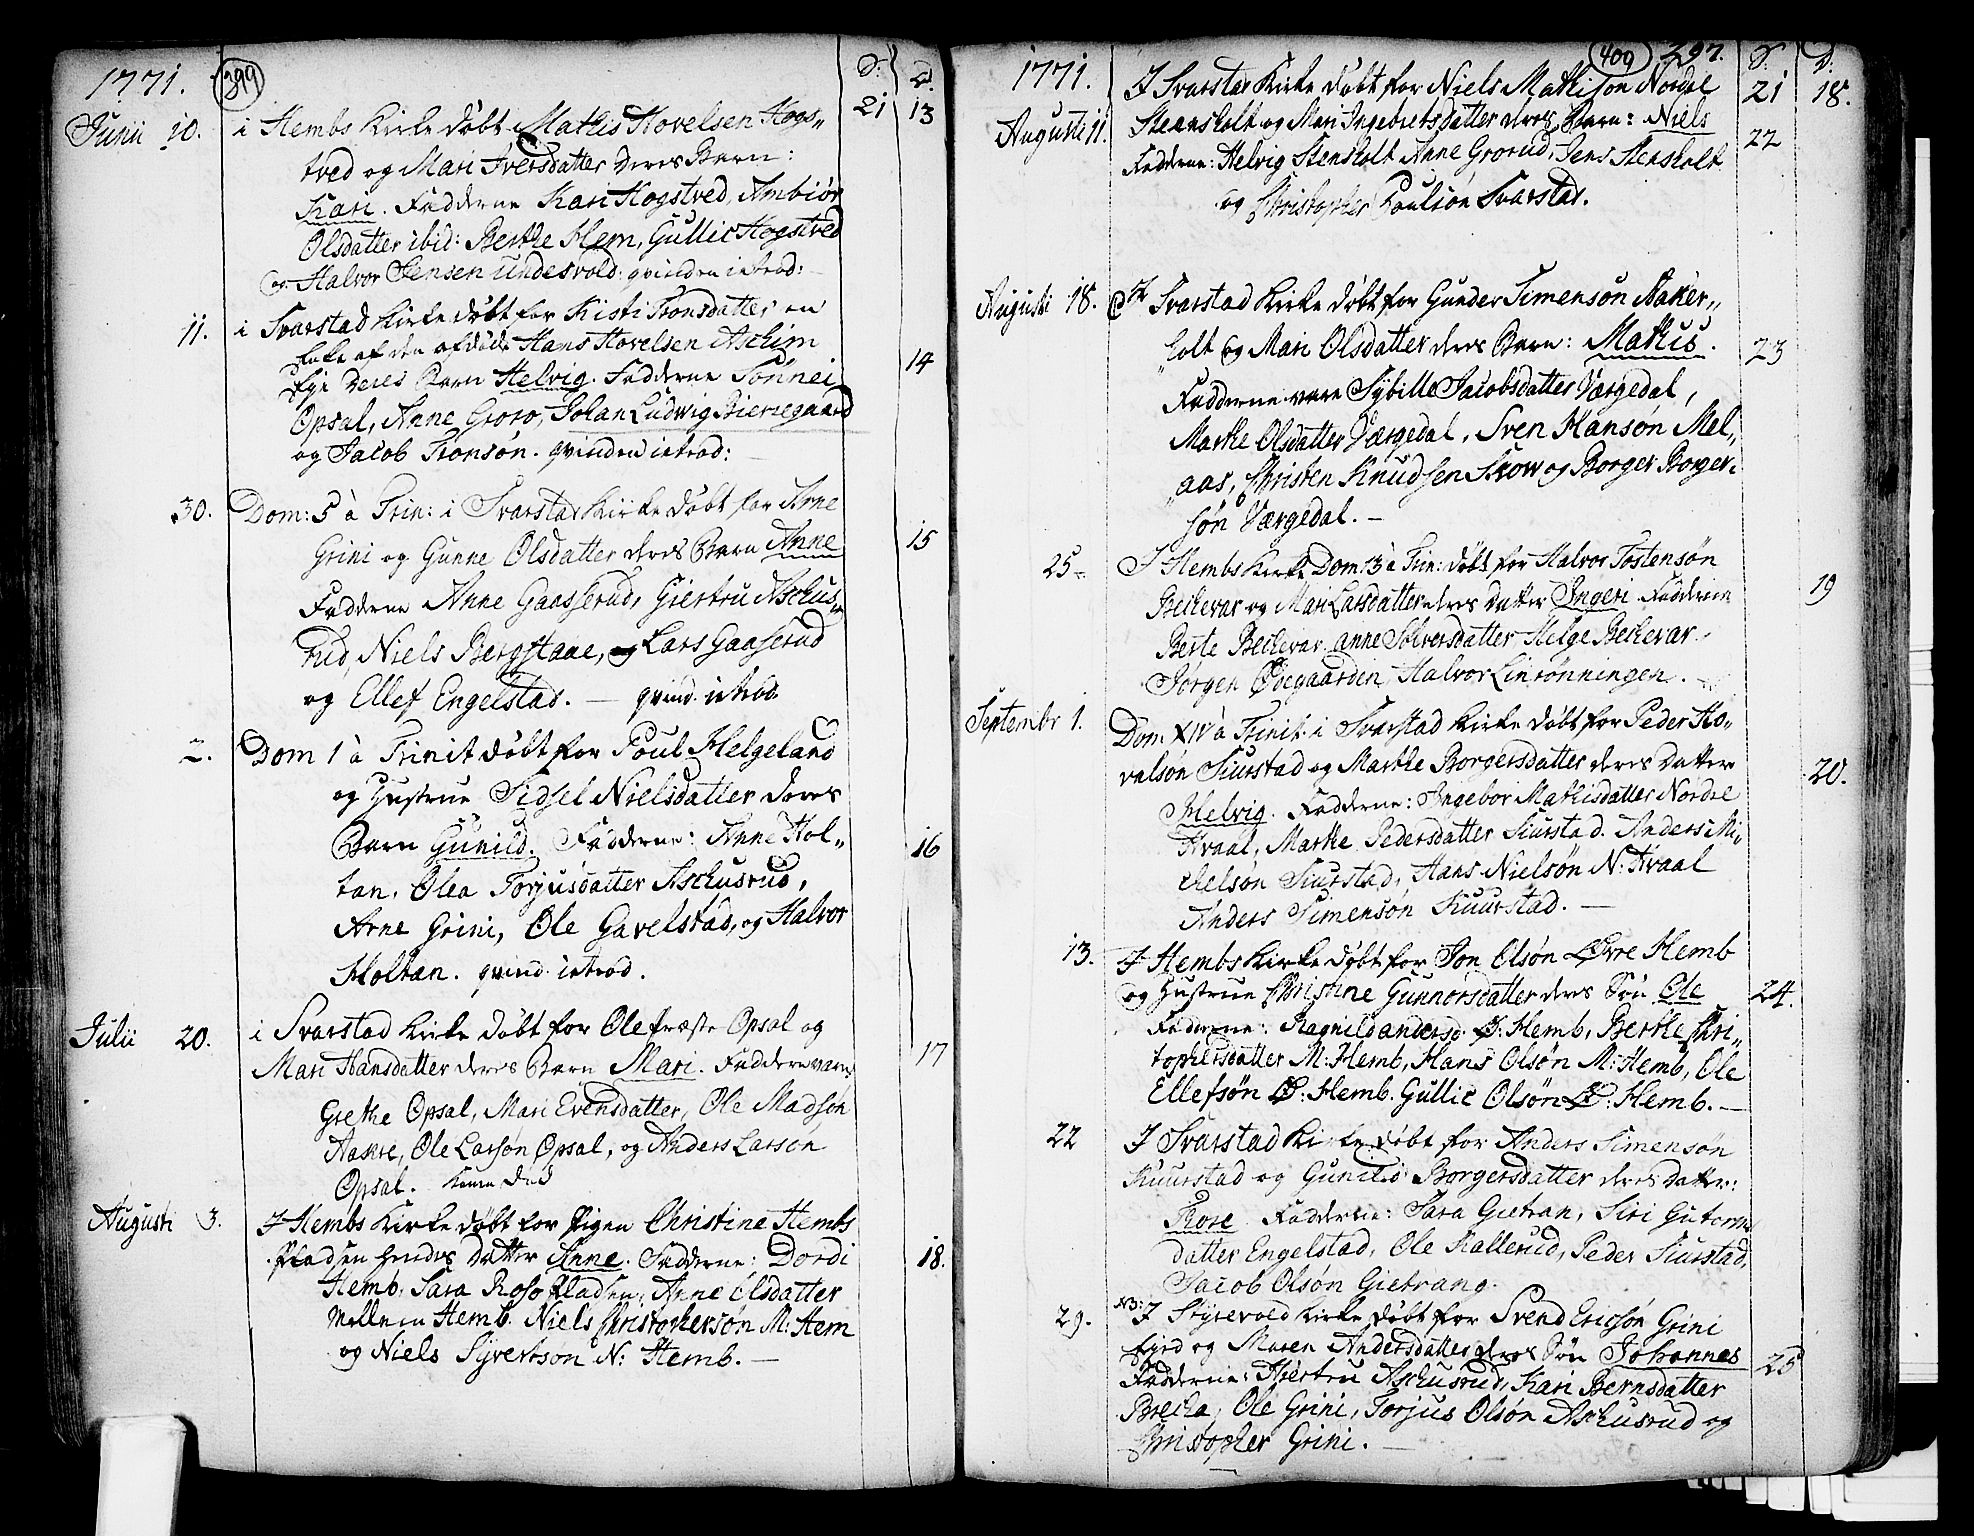 1771. 399 S: D.
Junii 10. i Hembs Kirke døbt Mathis Hovelsen Hogs„ 21 13
tved og Mari Iversdatter deres Barn:
Kari. Fadderne Kari Hogstved, Ambiør
Olsdatter ibid: Berthe Hem, Gullic Hogstved
og Halvor Jensen Undesvold. qvinden introd:
11. i Svarstad Kirke døbt for Kisti Tronsdatter en
Enke af den afdøde Hans Hovelsen Aschim
Eje deres Barn Helvig. Fadderne Sønnei 14
Opsal, Anne Groro, Johan Ludwig Bieregaard
og Jacob Tronsøn. qvinden introd:
30. Dom: 5 à Trin: i Svarstad Kirke døbt for Arne
Grini og Gunne Olsdatter deres Barn Anne 15
Fadderne Anne Gaaserud, Giertru Aschus„
rud, Niels Bergstane, og Lars Gaaserud
og Ellef Engelstad. — qvind. introd.
2. Dom 1 à Trinit døbt for Poul Helgeland
og Hustrue Sidsel Nielsdatter deres
Barn Gunild. Fadderne: Anne Hol„ 16
tan, Olea Torjusdatter Aschusrud,
Arne Grini, Ole Gavelstad, og Halvor
Holtan. qvind. introd.
Julii 20. i Svarstad Kirke døbt for Ole træste Opsal og
Mari Hansdatter deres Barn Mari. Fadderne vare 17
Grethe Opsal, Mari Evensdatter, Ole Madsøn
Aasrre, Ole Larsøn Opsal, og Anders Larson
Opsal. Konen død
Augusti 3. I Hembs Kirke døbt for Pigen Christine Hembs
Pladsen hendes datter Anne. Fadderne: Dordi 18.
Hemb, Sara Roso Pladsen, Anne Olsdatter
Mellem Hemb. Niels Christophersøn M: Hem
og Niels Syvertson N: Hemb. —
1771. 400 297. S. D.
I Svarstad Kirke døbt for Niels Mathison Nordre 21 18.
Augusti 11. Steensholt og Mari Ingebretsdatter deres Barn: Niels 22
Fadderne: Helvig Stensholt Anne Grorud, Jens Stensholt
og Christopher Poulsøn Svarstad.
Augusti 18. I Svarstad Kirke døbt for Gunder Simensøn Aaker„
holt og Mari Olsdatter deres Barn: Mathis. 23
Fadderne vare Sybille Jacobsdatter Værgedal,
Marthe Olsdatter Værgedal, Sven Hansøn Mel„
„aas, Christen Knudsen Skow og Borger Borger„
søn Værgedal. —
25. I Hembs Kirke Dom: 13 à Trin: døbt for Halvor Tostensøn
Beckevar og Mari Larsdatter deres datter Ingeri Fadderne 19
Berte Beckevar, Anne Solversdatter, Helge Beckevar,
Jørgen Ødegaarden, Halvor Linrønningen. —
Septembr 1. Dom XIV à Trinit: i Svarstad Kirke døbt for Peder Ho„
valsøn Siurstad og Marthe Borgersdatter deres datter 20.
Helvig. Fadderne: Ingebor Mathisdatter Nordre
Hvaal, Marthe Pedersdatter Siurstad. Anders Mi„
chelsøn Siurstad, Hans Nielsøn N: Hvaal
Anders Simensøn Kuurstad. —
13. I Hembs Kirke døbt for Jon Olsøn Øvre Hemb
og Hustrue Christine Gunnorsdatter deres Søn Ole 24.
Fadderne: Ragnild Andersd: Ø: Hemb, Berthe Chri„
tophersdatter M: Hemb, Hans Olsøn M: Hemb, Ole
Ellefsøn Ø: Hemb. Gullic Olsøn Ø: Hemb. —
22 I Svarstad Kirke døbt for Anders Simensøn
Kuurstad og Gunild Borgersdatter deres datter:
Thore. Fadderne: Sara Gietran, Siri Gutorms
datter Engelstad, Ole Kallerud, Peder Siurstad,
Jacob Olsøn Gietrang.
29. NB: I Styrevold Kirke døbt for Svend Ericsøn Grini
Ejed og Maren Andersdatter deres Søn Johannes 25
Fadderne: Hiertru Aschusrud, Kari Berntsdatter
Brecka, Ole Grini, Torjus Olsøn Aschusrud og
Christopher Grini. —